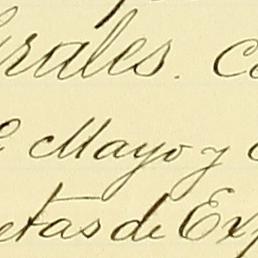 rales. C
e Mayo y
etas de Ex